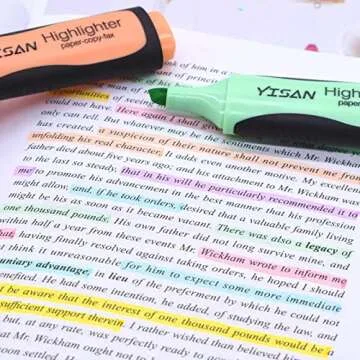 YISAN Highlighter
paper-copy-fax
YISAN High
paper-
could not have. Here again I shall give
only can tell. But whatever may be the sentiments which Mr. Wickham
a suspicion of their nature shall not prevent me from
unfolding his real character. It adds even another motive. My excellent
father died about five years ago; and his attachment to Mr. Wickham was
to the last so steady, that in his will he particularly recommended it to
me to promote his advancement in the best manner that his profession
might allow, and, if he took orders, desired that a valuable family living
be his as soon as it became vacant. There was also a legacy of
one thousand pounds. His own father did not long survive mine, and
within half a year from these events Mr. Wickham wrote to inform me
that, having finally resolved against taking orders, he hoped I should
think it unreasonable for him to expect some more immediate
pecuniary advantage, in lieu of the preferment by which he could not
benefited. He had some intention, he added, of studying the law, and
I must be aware that the interest of one thousand pounds would be a
insufficient support therein. I rather wished than believed
but, at any rate, was perfectly ready to